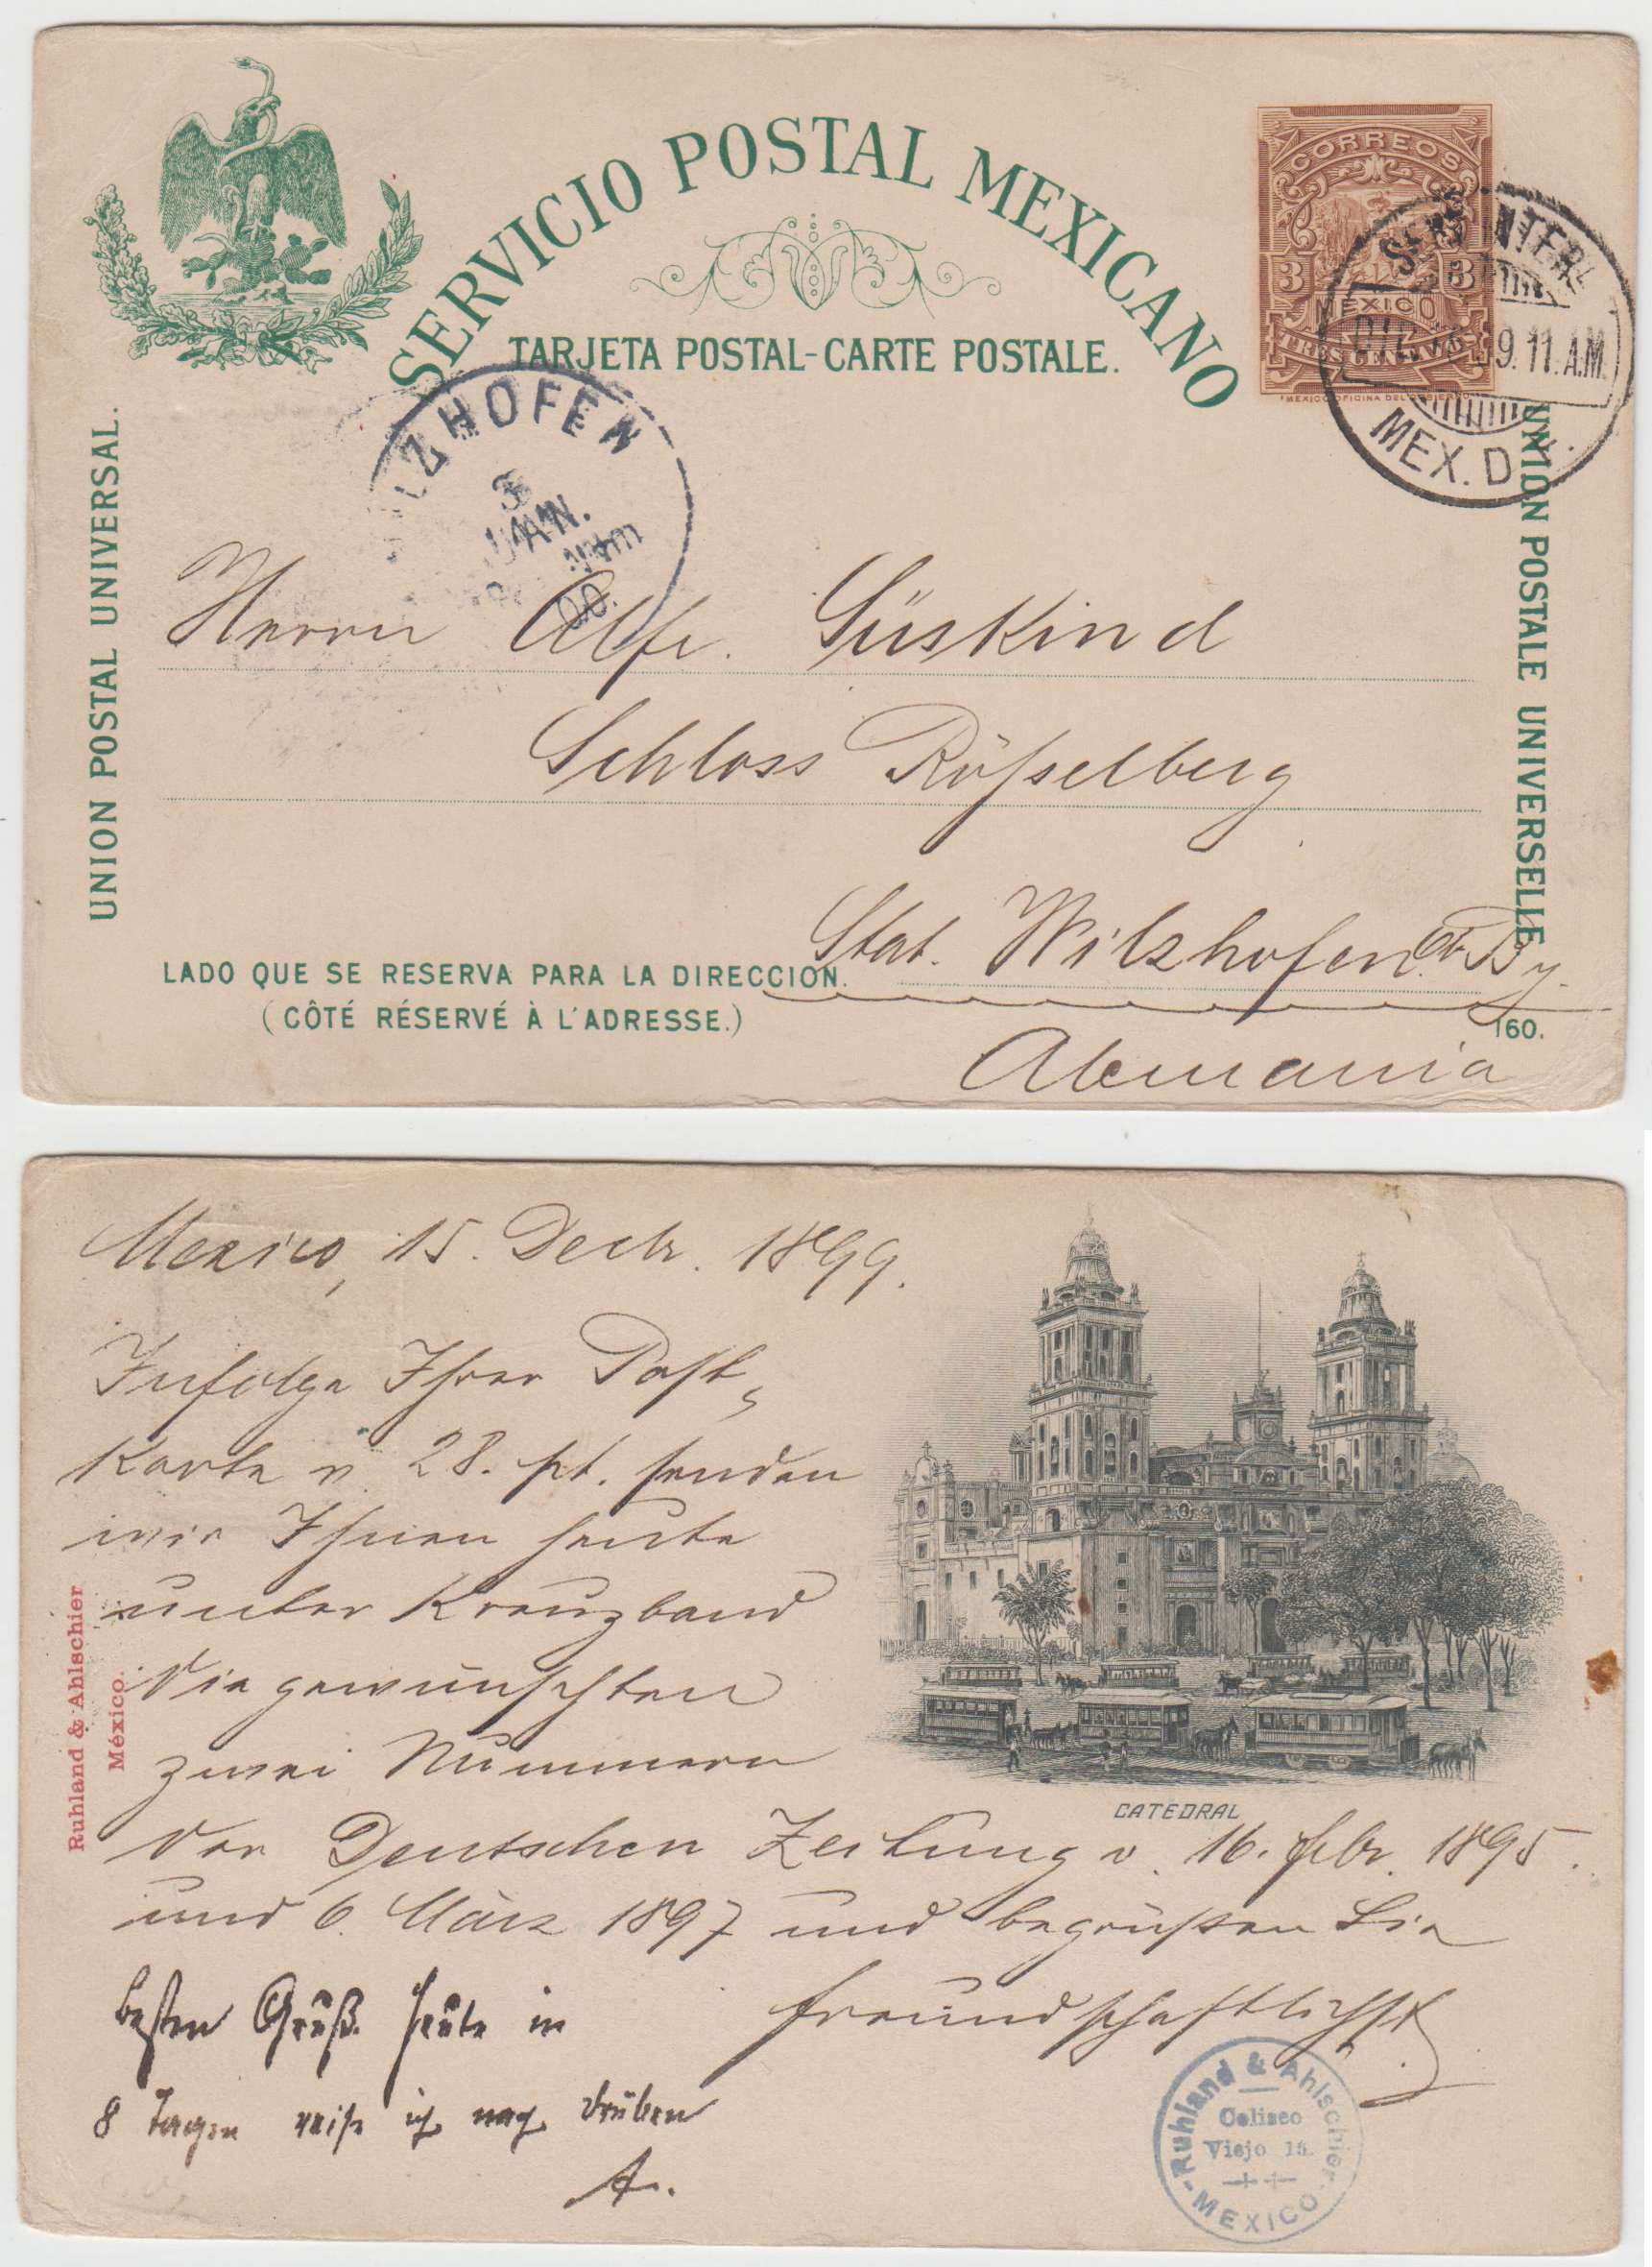 SERVICIO POSTAL MEXICANO
TARJETA POSTAL-CARTE POSTALE.
CORREOS
3 3
MEXICO
TRES CENTAVOS
MEX. D.F.
9. 11 A.M.
UNION POSTAL UNIVERSAL.
UNION POSTALE UNIVERSELLE
WILZHOFEN
3
JAN.
Nm
00.
Herrn Alfr. Süskind
Schloss Rößelberg
Stat. Wilzhofen By.
Alemania
LADO QUE SE RESERVA PARA LA DIRECCION.
(CÔTÉ RÉSERVÉ À L'ADRESSE.)
160.
Mexico, 15. Decbr. 1899.
Infolge Ihrer Post-
Karte v. 28. pt. senden
wir Ihnen heute
unter Kreuzband
die gewünschten
zwei Nummern
der Deutschen Zeitung v. 16. febr. 1895.
und 6. März 1897 und begrüßen Sie
freundschaftlichst
CATEDRAL
Ruhland & Ahlschier
México.
besten Gruß. heute in
8 Tagen reise ich nach drüben
A.
Ruhland & Ahlschier
Coliseo
Viejo 15.
MEXICO